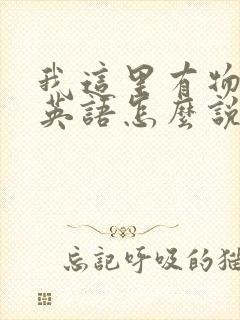 我這里有物
英語怎麼說
忘記呼吸的猫